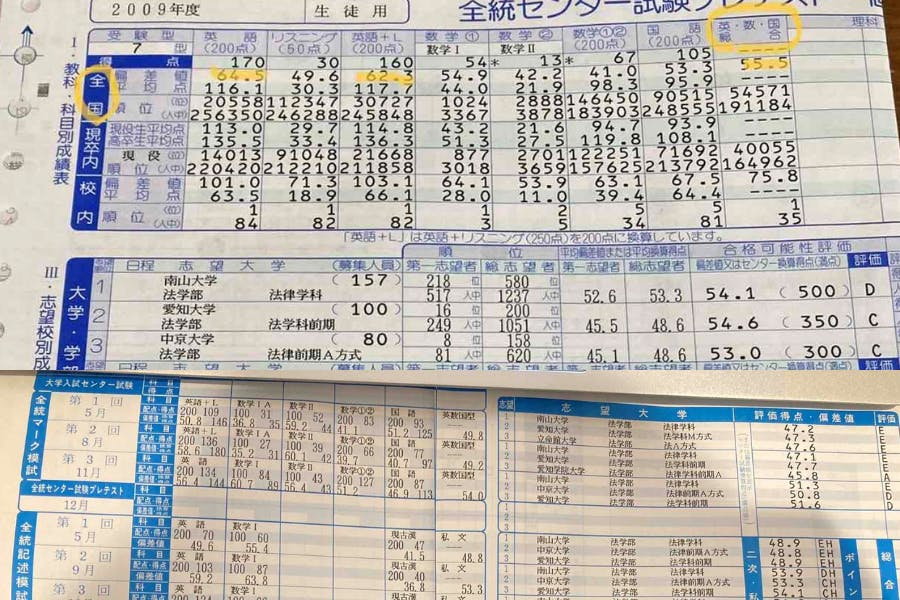 2009年度
生徒用
全統センター試験プレテスト
Ⅰ・教科・科目別成績表
受験型 英語 リスニング 英語+L 数学① 数学② 数学①② 国語 英・数・国 理科
7型 (200点) (50点) (200点) 数学Ⅰ 数学Ⅱ (200点) (200点) 総合
得点 170 30 160 54 * 13 * 67 105
全国
偏差値 64.5 49.6 62.3 54.9 42.2 41.0 53.3 55.5
平均点 116.1 30.3 117.7 44.0 21.9 98.3 95.9 ----
順位 (位) 20558 112347 30727 1024 2888 146450 90515 54571
(人中) 256350 246288 245848 3367 3878 183903 248555 191184
現卒内
現役生平均点 113.0 29.7 114.8 43.2 21.5 94.7 93.9 ----
高卒生平均点 135.5 33.4 136.3 51.3 27.6 119.8 108.1 ----
現役 (位) 14013 91048 21668 877 2701 122251 71692 40055
順位 (人中) 220420 212210 211858 3018 3659 157625 213792 164962
校内
偏差値 101.0 71.3 103.1 64.1 53.9 63.1 67.5 75.8
平均点 63.5 18.9 66.1 28.0 11.0 39.4 64.4 ----
順位 (位) 1 1 1 1 2 5 1 1
(人中) 84 82 82 3 5 34 81 35
「英語+L」は英語+リスニング(250点)を200点に換算しています。
Ⅲ・志望校別成
大学・学部
日程 志望大学 (募集人員) 順位 平均偏差値または平均換算得点 合格可能性評価
第一志望者 総志望者 第一志望者 総志望者 偏差値又はセンター換算得点(満点) 評価
1 南山大学 (157) 218位 580位
法学部 法律学科 517人中 1237人中 52.6 53.3 54.1 (500) D
2 愛知大学 (100) 16位 200位
法学部 法学科前期 249人中 1051人中 45.5 48.6 54.6 (350) C
3 中京大学 (80) 8位 158位
法学部 法律前期A方式 81人中 620人中 45.1 48.6 53.0 (300) C
大学入試センター試験 科目
得点
全統マーク模試
第1回 5月
英語+L 数学ⅠA 数学Ⅱ 数学①② 国語 英数国型
200 109 100 31 100 52 200 83 200 93
第2回 8月
200 136 100 27
第3回 11月
200 134 100 84 100 43 200 127 200 87
56.4 144 60.7 89 56.4 43 51.2 46.9 113 54.0
全統センター試験プレテスト 12月
全統記述模試
第1回 5月
英語 数学Ⅰ 現古漢 私文
200 70 100 60 200 47
49.6 55.4 41.5 48.8
第2回 9月
英語 数学Ⅰ 現古漢 私文
200 103 100 87 200 40
59.2 63.8 36.8 53.3
第3回
志望 志望大学 評価得点・偏差値 評価
南山大学 法学部 法律学科 47.2 E
愛知大学 法学部 法学科M方式 47.3 E
立命館大学 法学部 法A方式 47.6
南山大学 法学部 法律学科 47.1
愛知大学 法学部 法学科前期 47.7
愛知学院大学 法学部 法律学科前期A 45.8
南山大学 法学部 法律学科 51.3
中京大学 法学部 法律前期A方式 50.8
愛知大学 法学部 法学科前期 51.6 D
南山大学 法学部 法律学科 48.9 EH
中京大学 法学部 法律前期A方式 48.8 EH
愛知大学 法学部 法学科前期 48.9 EH
南山大学 法学部 法律学科 53.9 DH
中京大学 法学部 法律前期A方式 53.3 CH
愛知大学 法学部 法学科前期 54.1 CH
二次・私
ポイン
総合